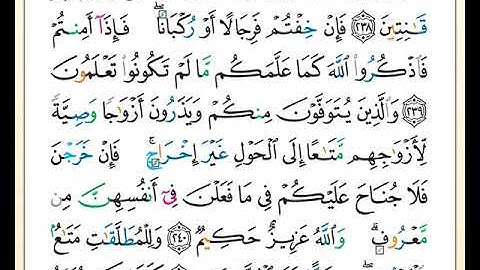 قَـٰنِتِينَ ٢٣٨ فَإِنْ خِفْتُمْ فَرِجَالًا أَوْ رُكْبَانًا ۖ فَإِذَآ أَمِنتُمْ
فَٱذْكُرُوا۟ ٱللَّهَ كَمَا عَلَّمَكُم مَّا لَمْ تَكُونُوا۟ تَعْلَمُونَ
٢٣٩ وَٱلَّذِينَ يُتَوَفَّوْنَ مِنكُمْ وَيَذَرُونَ أَزْوَٰجًا وَصِيَّةً
لِّأَزْوَٰجِهِم مَّتَـٰعًا إِلَى ٱلْحَوْلِ غَيْرَ إِخْرَاجٍ ۚ فَإِنْ خَرَجْنَ
فَلَا جُنَاحَ عَلَيْكُمْ فِى مَا فَعَلْنَ فِىٓ أَنفُسِهِنَّ مِن
مَّعْرُوفٍ ۗ وَٱللَّهُ عَزِيزٌ حَكِيمٌ ٢٤٠ وَلِلْمُطَلَّقَـٰتِ مَتَـٰعٌۢ